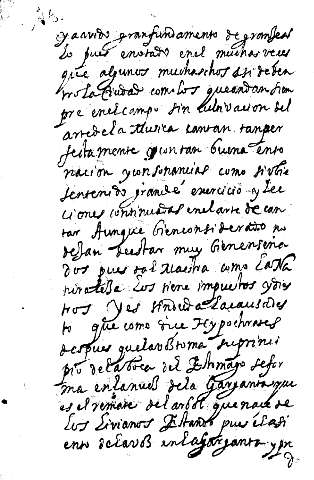 y aavido gran fundamento de gran sea
lo pues e notado en el muchas veces
que algunos muchachos assi de den
tro la Ciudad como los que andan siem
pre en el campo sin cultivacion del
arte de la Musica cantan tan per
fectamente y con tan buena ento
nacion y consonancias como si ubie
sen tenido grande exercicio y lec
ciones continuadas en el arte de can
tar Aunque bien considerado no
dejan de estar muy bien enseña
dos pues tal Maestra como la Na
turaleza los tiene impuestos y dies
tros Y es sin duda la causa des
to que como dice Hypochrates
despues que la voz toma su princi
pio de la boca del Estomago se for
ma en la nuez de la Garganta que
es el remate del arbol que nace de
los Livianos Estando pues el asi
ento de la voz en la Garganta y pe